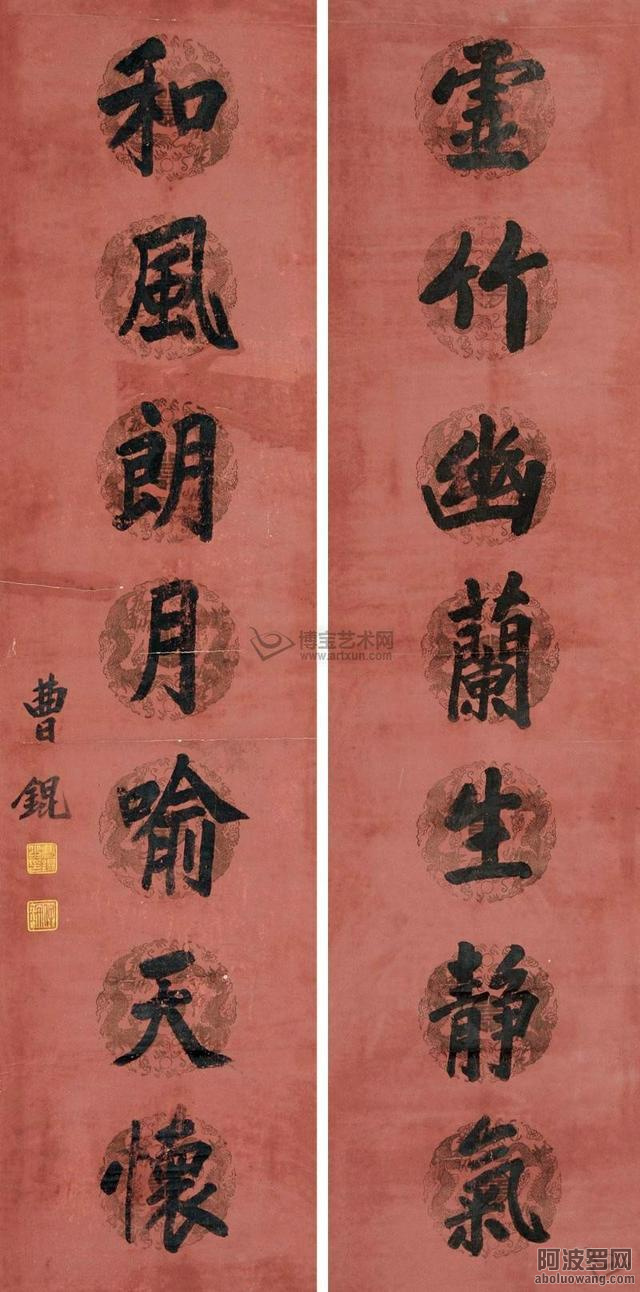 霊竹幽蘭生静氣
和風朗月喻天懷
曹錕
博宝艺术网
www.artxun.com
阿波罗网
aboluowang.com